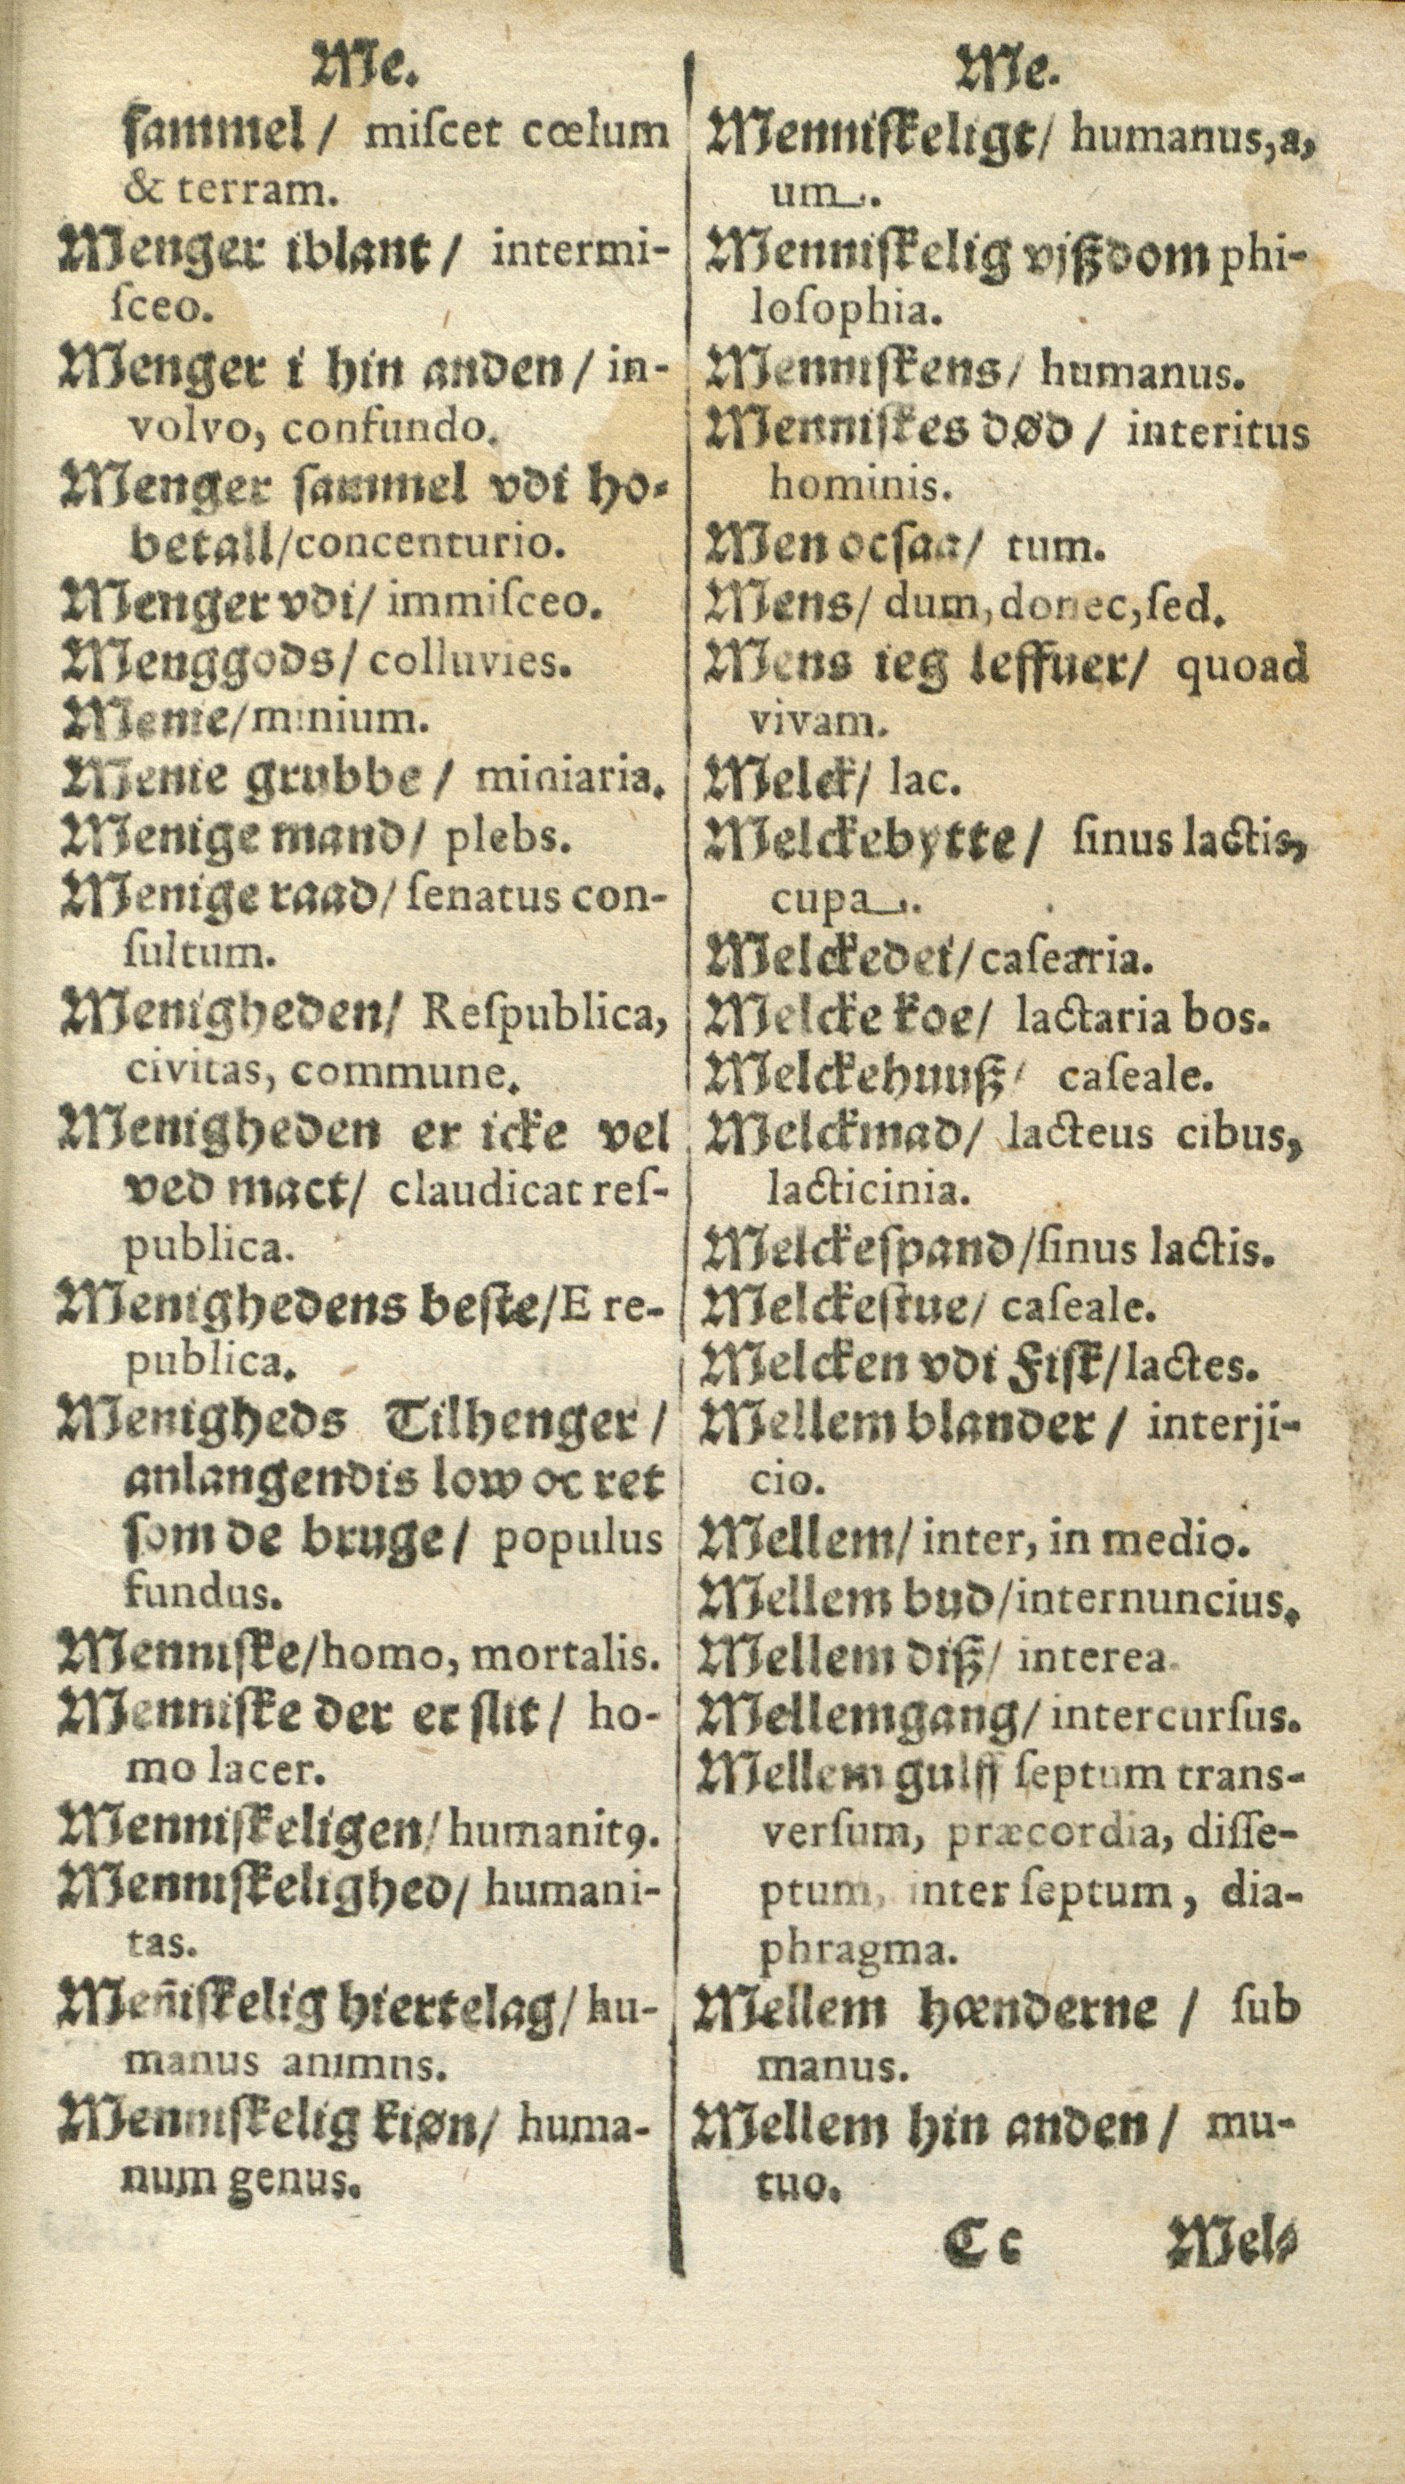 Me.
sammel/ miſcet cœlum
& terram.
Menger iblant/ intermi-
ſceo.
Menger i hin anden/ in-
volvo, confundo.
Menger ſammel vdi ho-
betall/concenturio.
Menger vdi/ immiſceo.
Menggods/ colluvies.
Menie/minium.
Menie grubbe/ miniaria.
Menige mand/ plebs.
Menige raad/ ſenatus con-
ſultum.
Menigheden/ Reſpublica,
civitas, commune.
Menigheden er icke vel
ved mact/ claudicat reſ-
publica.
Menighedens beſte/E re-
publica.
Menigheds Tilhenger/
anlangendis low oc ret
ſom de bruge/ populus
fundus.
Menniſke/homo, mortalis.
Menniſke der er ſlit/ ho-
mo lacer.
Menniſkeligen/humanitꝰ.
Menniſkelighed/ humani-
tas.
Meñiſkelig hiertelag/ hu-
manus animns.
Menniſkelig kiøn/ huma-
num genus.
Me.
Menniſkeligt/ humanus,a,
um.
Menniſkelig vjßdom phi-
loſophia.
Menniſkens/ humanus.
Menniſkes død/ interitus
hominis.
Men ocſaa/ tum.
Mens/ dum,donec,ſed.
Mens ieg leffuer/ quoad
vivam.
Melck/ lac.
Melckebytte/ ſinus lactis,
cupa.
Melckedei/caſearia.
Melcke koe/ lactaria bos.
Melckehuuß/ caſeale.
Melckmad/ lacteus cibus,
lacticinia.
Melckeſpand/ſinus lactis.
Melckeſtue/ caſeale.
Melcken vdi Fiſk/lactes.
Mellem blander/ interji-
cio.
Mellem/ inter, in medio.
Mellem bud/internuncius.
Mellem diß/ interea.
Mellemgang/ intercurſus.
Mellem gulff ſeptum trans-
verſum, præcordia, diſſe-
ptum, inter ſeptum, dia-
phragma.
Mellem hænderne/ ſub
manus.
Mellem hin anden/ mu-
tuo.
Cc Mel-